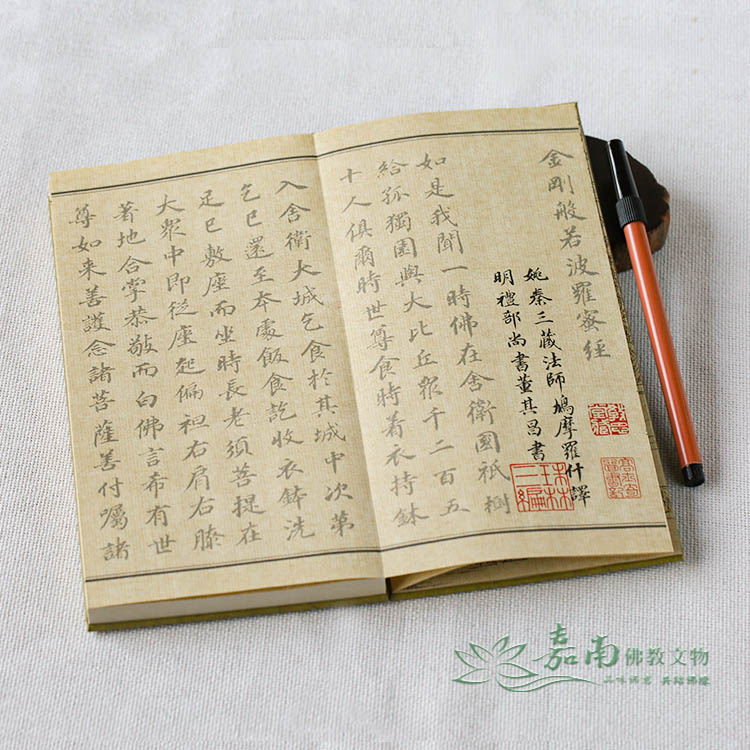 金剛般若波羅蜜經
姚秦三藏法師鳩摩羅什譯
明禮部尚書董其昌書
如是我聞一時佛在舍衛國祇樹
給孤獨園與大比丘眾千二百五
十人俱爾時世尊食時着衣持鉢
入舍衛大城乞食於其城中次第
乞已還至本處飯食訖收衣鉢洗
足已敷座而坐時長老須菩提在
大眾中即從座起偏袒右肩右膝
著地合掌恭敬而白佛言希有世
尊如来善護念諸菩薩善付囑諸
嘉南佛教文物